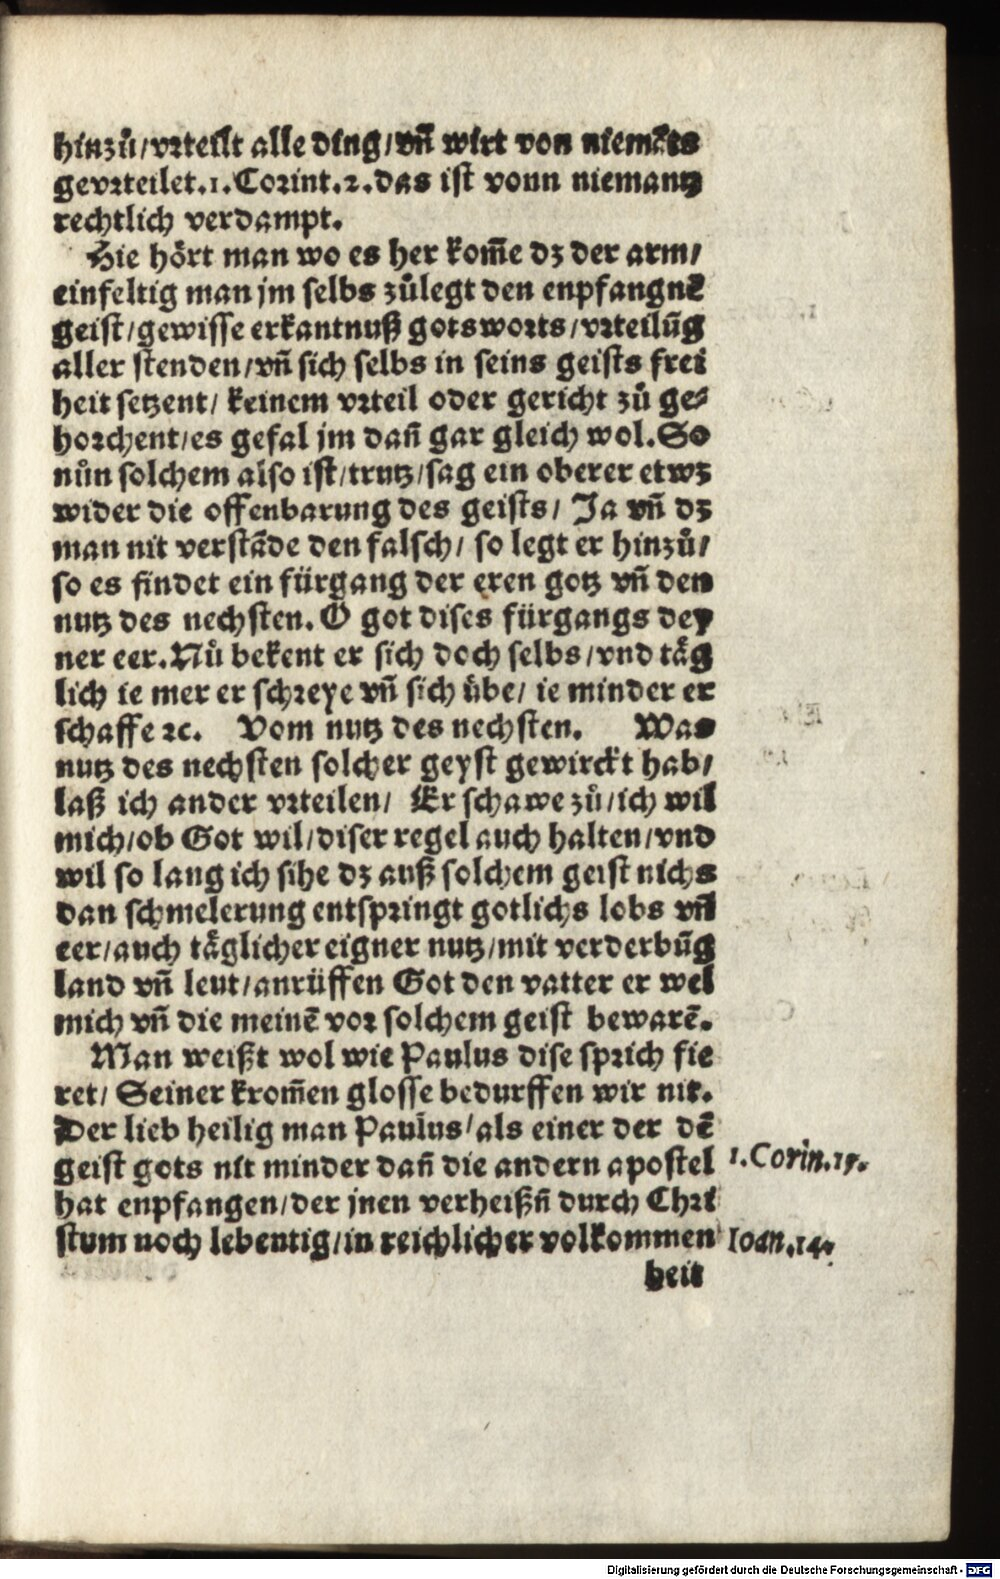 hinzů/vrteilt alle ding/vñ wirt von niemãts
gevrteilet.1.Corint.2.das ist vonn niemantz
rechtlich verdampt.
Hie hört man wo es her kom̃e dz der arm/
einfeltig man jm selbs zůlegt den enpfangnẽ
geist/gewisse erkantnuß gotsworts/vrteilũg
aller stenden/vñ sich selbs in seins geists frei
heit setzent/ keinem vrteil oder gericht zů ge⸗
horchent/es gefal jm dañ gar gleich wol.So
nůn solchem also ist/trutz/sag ein oberer etwz
wider die offenbarung des geists/ Ja vñ dz
man nit verstãde den falsch/ so legt er hinzů/
so es findet ein fürgang der eren gotz vñ den
nutz des nechsten. O got dises fürgangs dey
ner eer.Nů bekent er sich doch selbs/vnd täg
lich ie mer er schreye vñ sich übe/ ie minder er
schaffe ꝛc. Vom nutz des nechsten. Was
nutz des nechsten solcher geyst gewirckt hab/
laß ich ander vrteilen/ Er schawe zů/ich wil
mich/ob Got wil/diser regel auch halten/vnd
wil so lang ich sihe dz auß solchem geist nichs
dan schmelerung entspringt gotlichs lobs vñ
eer/auch täglicher eigner nutz/mit verderbũg
land vñ leut/anrüffen Got den vatter er wel
mich vñ die meinẽ vor solchem geist bewarẽ.
Man weißt wol wie Paulus dise sprich fie
ret/ Seiner krom̃en glosse bedurffen wir nit.
Der lieb heilig man Paulus/als einer der dẽ
geist gots nit minder dañ die andern apostel 1.Corin.15.
hat enpfangen/der jnen verheißñ durch Chri
stum noch lebentig/in reichlicher volkommen Ioan.14.
heit
Digitalisierung gefördert durch die Deutsche Forschungsgemeinschaft - DFG